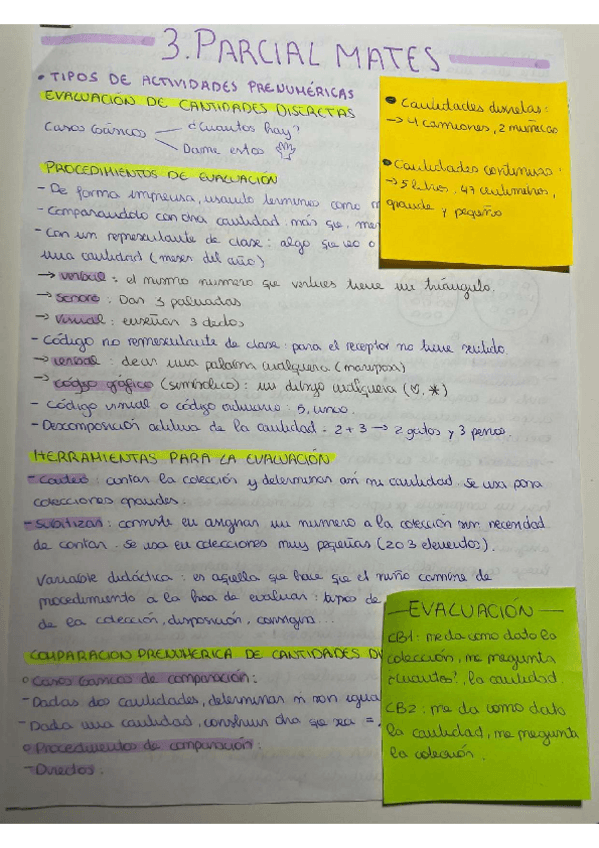 3. PARCIAL MATES
• TIPOS DE ACTIVIDADES PRENUMÉRICAS
EVALUACIÓN DE CANTIDADES DISCRETAS
Casos básicos — ¿Cuantos hay?
— Dame estos
PROCEDIMIENTOS DE EVALUACIÓN
- De forma imprecisa, usando terminos como
- Comparandolo con otra cantidad, más que,
- Con un representante de clase: algo que veo o
una cantidad (meses del año)
→ verbal: el mismo numero que vertices tiene un triángulo.
→ sonoro: Dar 3 palmadas
→ visual: enseñar 3 dedos
- Código no representante de clase: para el receptor no tiene sentido
→ verbal: decir una palabra cualquiera (mariposa)
→ código gráfico (simbólico): un dibujo cualquiera (♡, *)
- Código visual o código ordinario: 5, cinco.
- Descomposición aditiva de la cantidad: 2 + 3 → 2 gatos y 3 perros.
HERRAMIENTAS PARA LA EVALUACIÓN
- Conteo: contar la colección y determinar así su cantidad. Se usa para
colecciones grandes.
- Subitizar: consiste en asignar un numero a la colección sin necesidad
de contar. Se usa en colecciones muy pequeñas (2 o 3 elementos).
Variable didáctica: es aquella que hace que el niño cambie de
procedimiento a la hora de evaluar: tipos de
de la colección, disposición, consigna...
COMPARACION PRENUMERICA DE CANTIDADES DI
○ Casos básicos de comparación:
- Dadas dos cantidades, determinar si son igua
- Dada una cantidad, construir otra que sea =,
○ Procedimientos de comparación:
- Directos:
• Cantidades discretas:
→ 4 camiones, 2 muñecas
• Cantidades continuas:
→ 5 litros, 47 centimetros,
grande y pequeño
— EVALUACIÓN —
CB1: me da como dato la
colección, me pregunta
¿cuantos?, la cantidad.
CB2: me da como dato
la cantidad, me pregunta
la colección.